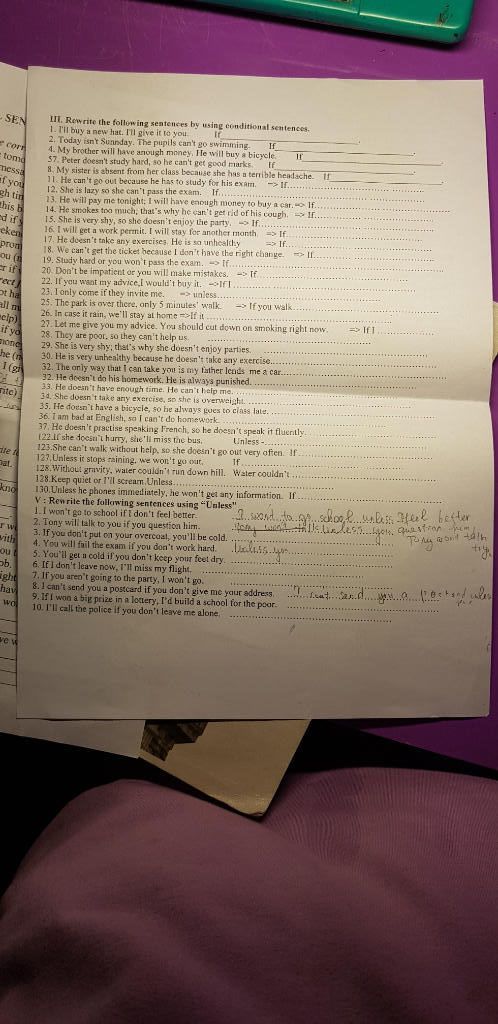 III. Rewrite the following sentences by using conditional sentences.
1. I'll buy a new hat. I'll give it to you. If
2. Today isn't Sunnday. The pupils can't go swimming. If
4. My brother will have anough money. He will buy a bicycle. If
57. Peter doesn't study hard, so he can't get good marks. If
8. My sister is absent from her class because she has a terrible headache. If
11. He can't go out because he has to study for his exam. => If
12. She is lazy so she can't pass the exam. If
13. He will pay me tonight; I will have enough money to buy a car. => If
14. He smokes too much; that's why he can't get rid of his cough. => If
15. She is very shy, so she doesn't enjoy the party. => If
16. I will get a work permit. I will stay for another month. => If
17. He doesn't take any exercises. He is so unhealthy => If
18. We can't get the ticket because I don't have the right change. => If
19. Study hard or you won't pass the exam. => If
20. Don't be impatient or you will make mistakes. => If
22. If you want my advice,I would't buy it. =>If I
23. I only come if they invite me. => unless
25. The park is over there, only 5 minutes' walk. => If you walk
26. In case it rain, we'll stay at home =>If it
27. Let me give you my advice. You should cut down on smoking right now. => If I
28. They are poor, so they can't help us.
29. She is very shy; that's why she doesn't enjoy parties.
30. He is very unhealthy because he doesn't take any exercise
32. The only way that I can take you is my father lends me a car
32. He doesn't do his homework. He is always punished.
33. He doesn't have enough time. He can't help me.
34. She doesn't take any exercise, so she is overweight.
35. He doesn't have a bicycle, so he always goes to class late.
36. I am bad at English, so I can't do homework.
37. He doesn't practise speaking French, so he doesn't speak it fluently.
122.If she doesn't hurry, she'll miss the bus. Unless
123.She can't walk without help, so she doesn't go out very often. If
127.Unless it stops raining, we won't go out. If
128.Without gravity, water couldn't run down hill. Water couldn't
128.Keep quiet or I'll scream.Unless
130.Unless he phones immediately, he won't get any information. If
V : Rewrite the following sentences using "Unless"
1. I won't go to school if I don't feel better. I won't to go school unless I feel better
2. Tony will talk to you if you question him. Tony wont talk unless you question him
Tony wont talk
3. If you don't put on your overcoat, you'll be cold.
4. You will fail the exam if you don't work hard. Unless you
5. You'll get a cold if you don't keep your feet dry.
6. If I don't leave now, I'll miss my flight.
7. If you aren't going to the party, I won't go.
8. I can't send you a postcard if you don't give me your address. I send you a
9. If I won a big prize in a lottery, I'd build a school for the poor.
10. I'll call the police if you don't leave me alone.